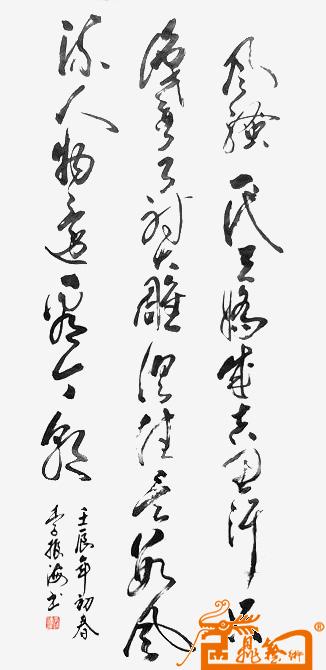 风骚一代天骄成吉思汗只
识弯弓射大雕俱往矣数风
流人物还看今朝
壬辰年初春
李振海书